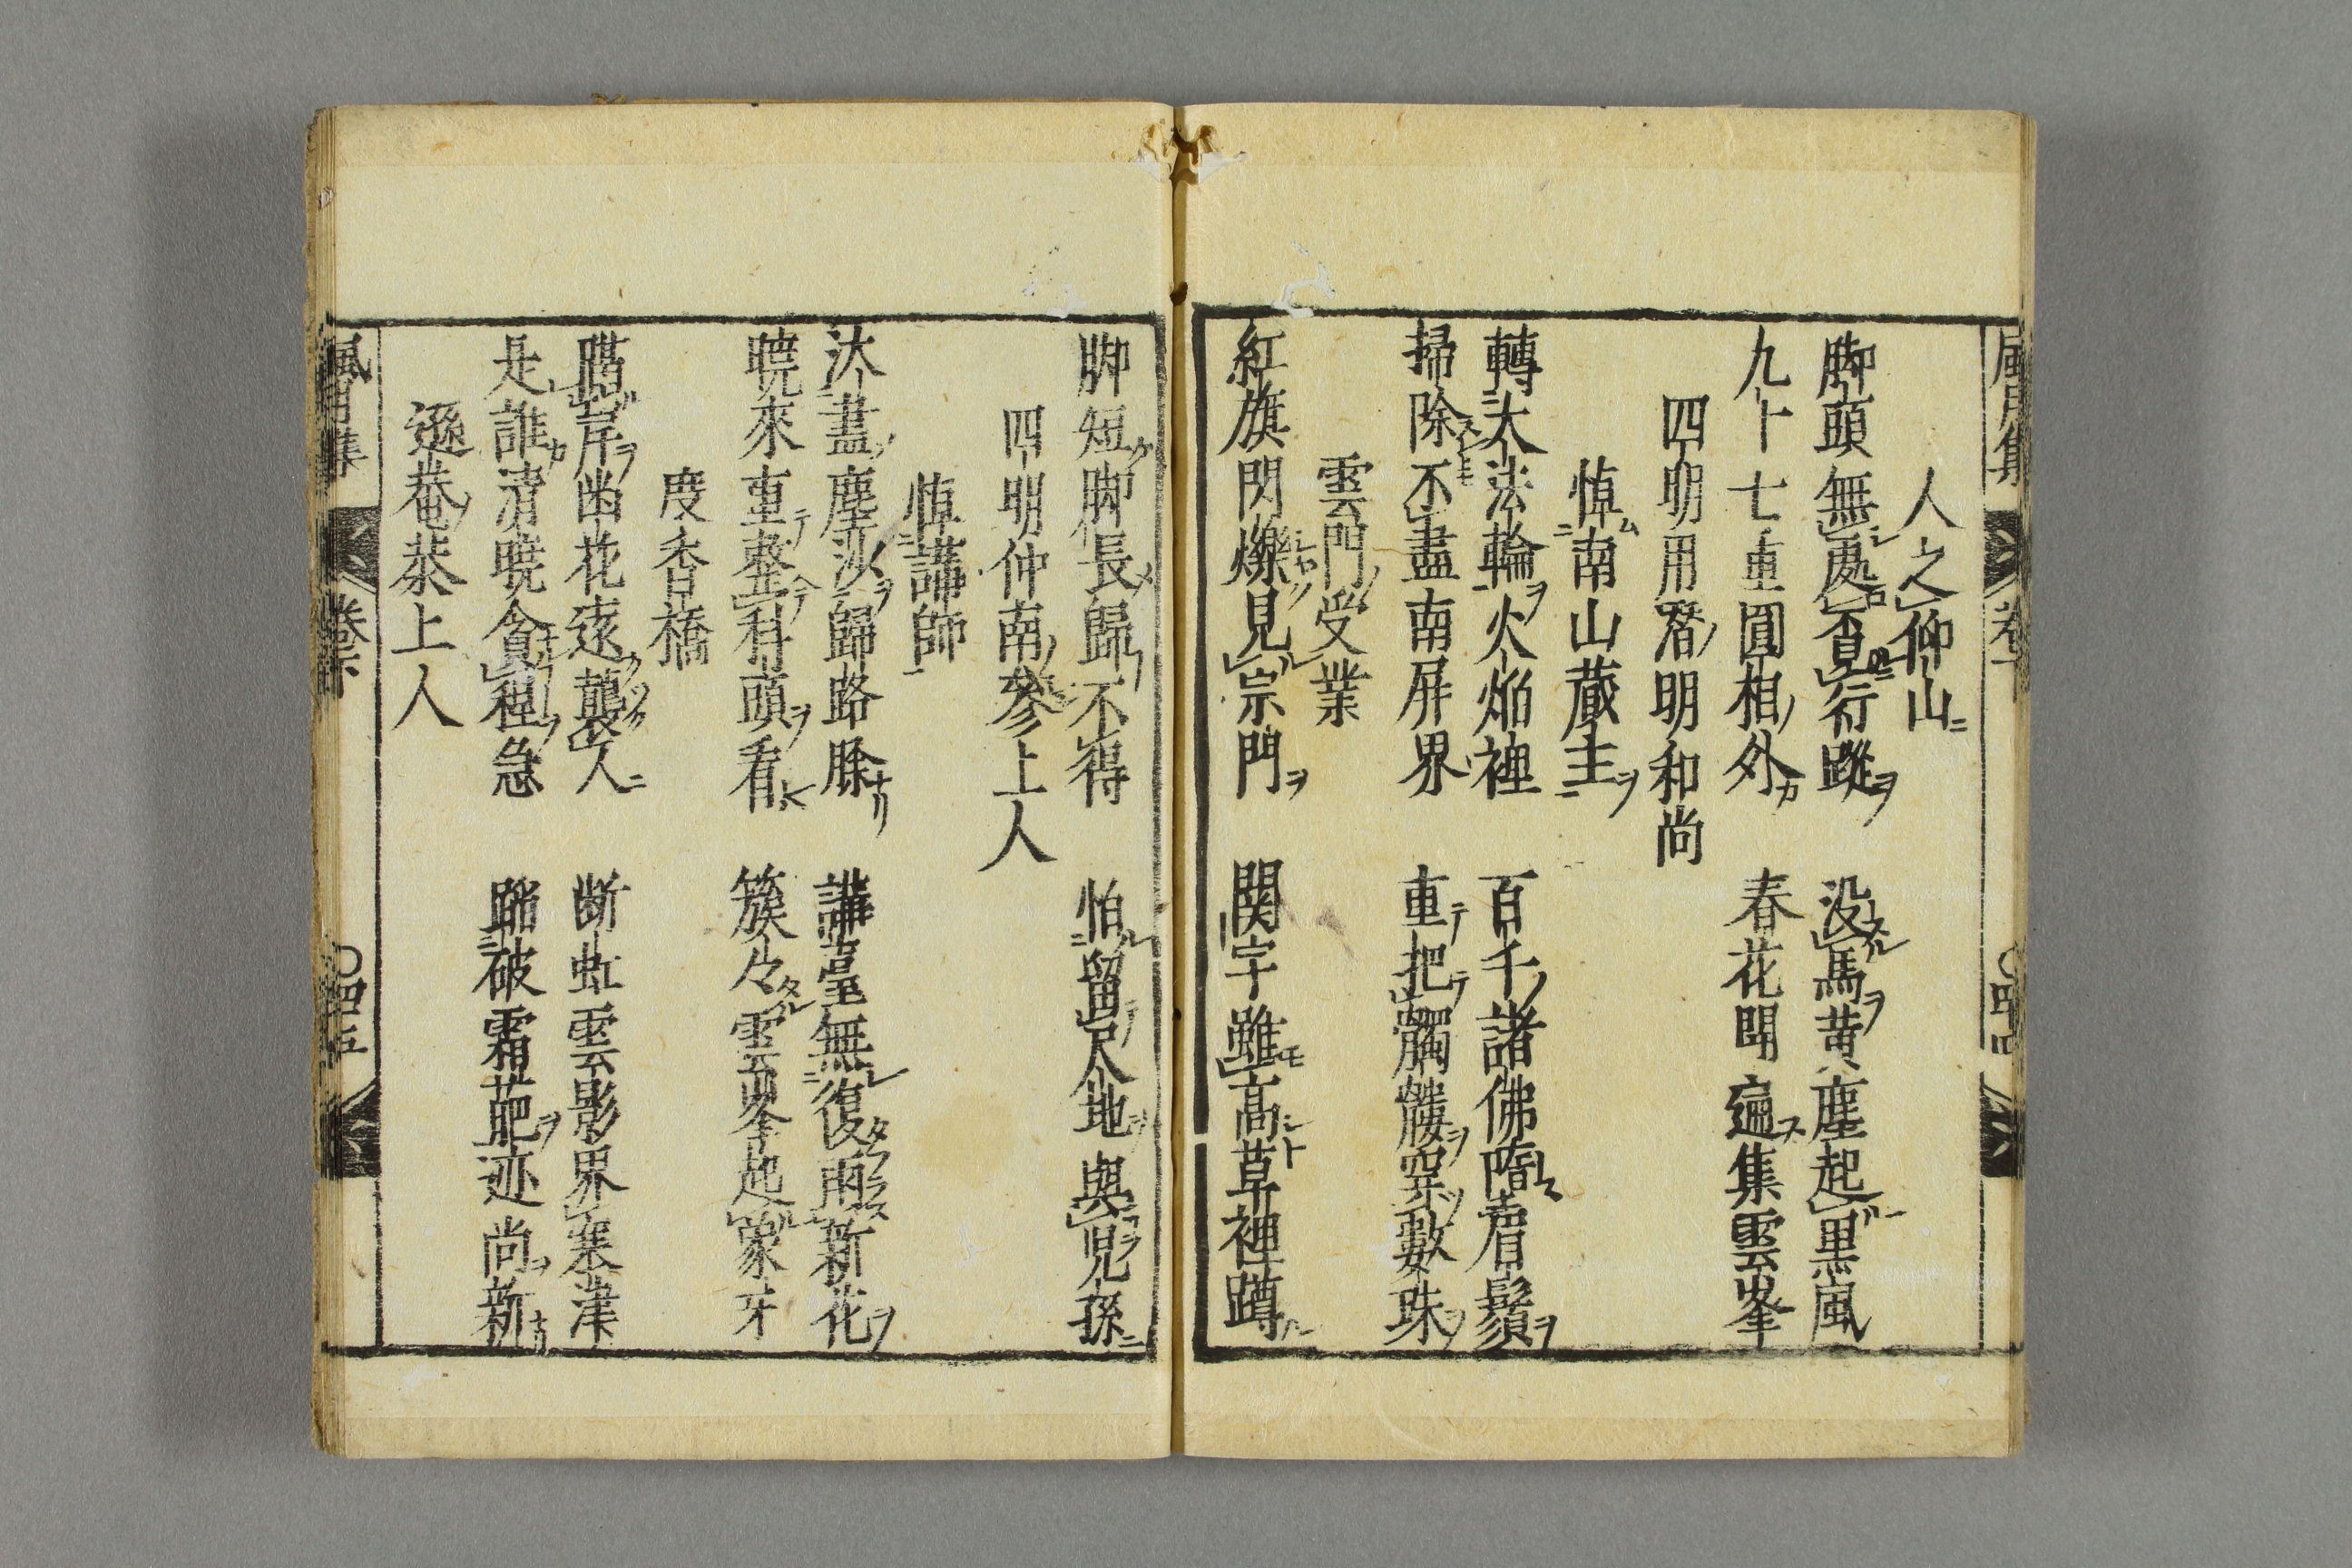 人之仰山
脚頭無處覔行蹤　没馬黄塵起黒嵐
九十七重圓相外　春花開遍集雲峯
四明用潛明和尚
悼南山藏主
轉大法輪火焔裡　百千諸佛墮眉鬚
掃除不盡南屏界　重把髑髏穿數珠
雲門受業
紅旗閃爍見宗門　関字雖高草裡蹲
脚短脚長歸不得　怕留尺地與児孫
四明仲南參上人
悼講師
汰盡塵沙歸路賖　講臺無復雨新花
曉來重整科頭看　簇々雲峯起象牙
度香橋
踏岸幽花遠襲人　断虹雲影界寒津
是誰清曉貪程急　蹈破霜葩迹尚新
遜菴恭上人
風月集　卷下　〇四五